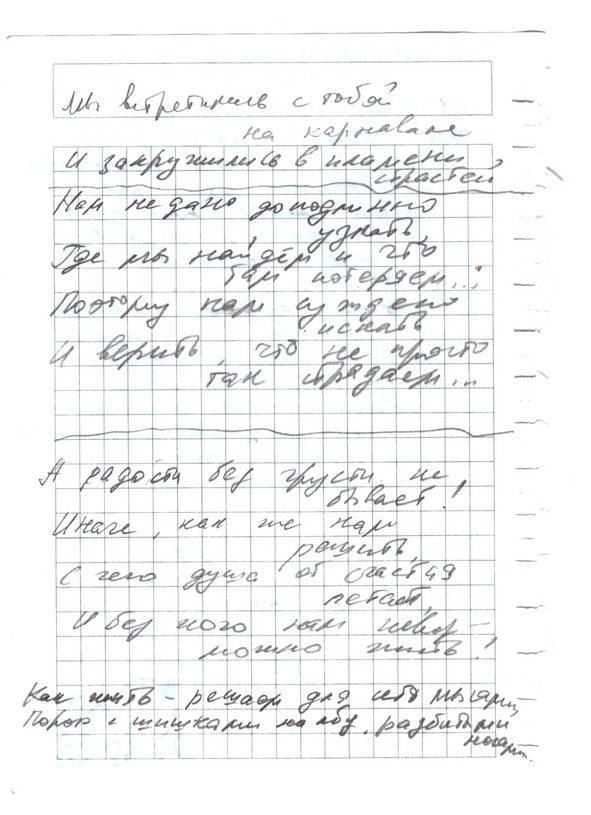 Мы встретились с тобой
на карнавале
И закружились в пламени
страстей
Нам не дано доподлинно
узнать,
Где мы найдём и что
там потеряем...
Поэтому нам суждено
искать
И верить, что не просто
так страдаем...
А радости без грусти не
бывает!
Иначе, как же нам
решить,
С чего душа от счастья
летает,
И без кого нам невоз-
можно жить!
Как жить - решаем для себя мы сами,
Порой с шишками на лбу, разбитыми
ногами.